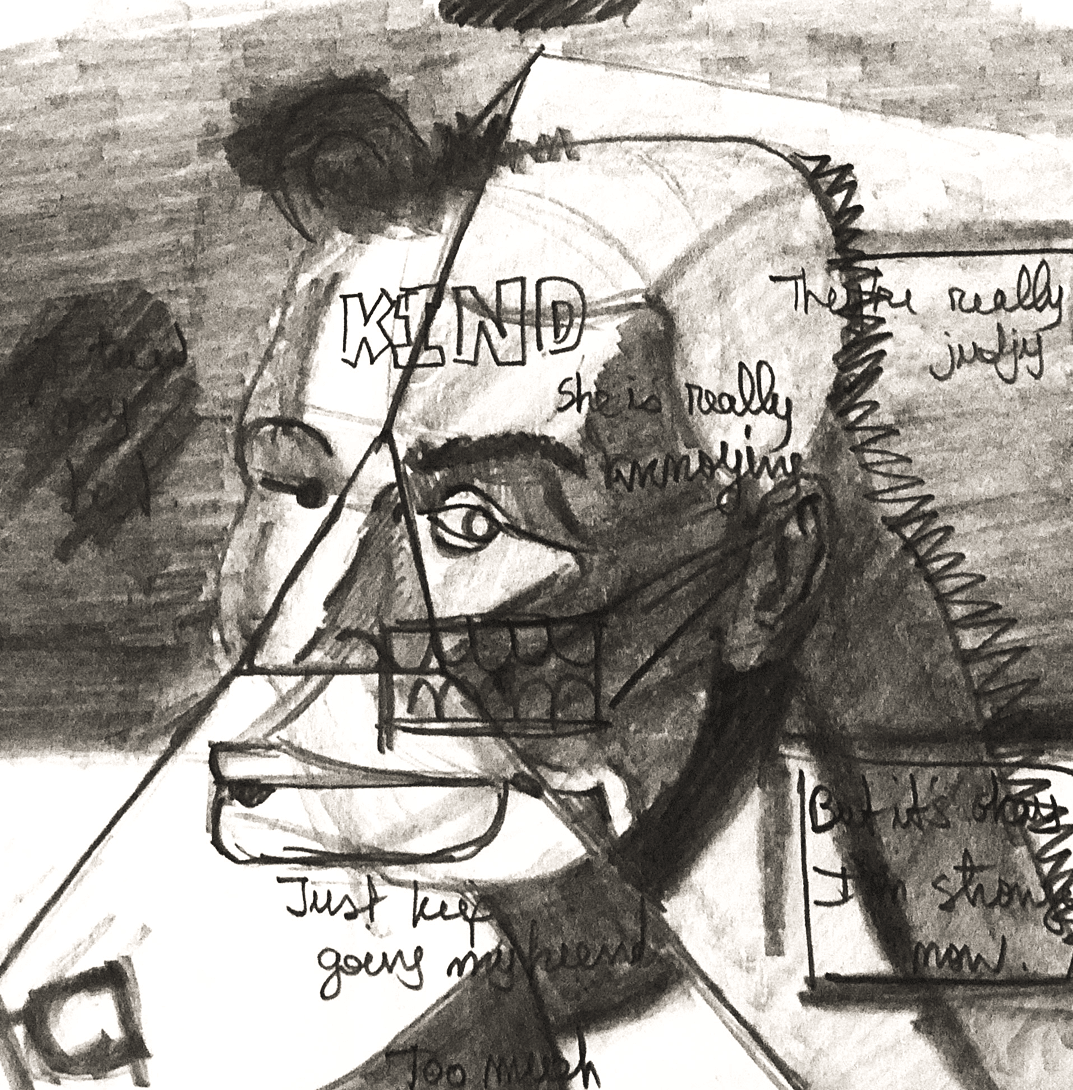 KIND
They're really
judjy
she is really
annoying
But it's okay
I'm strong
now.
Just keep
going my friend
Too much